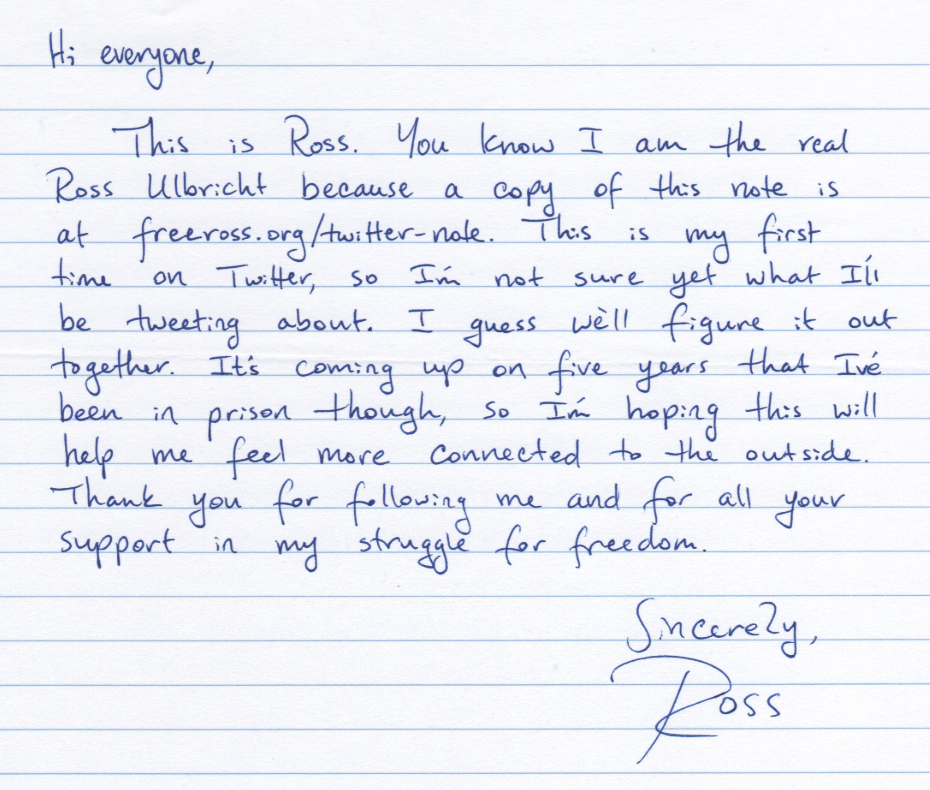 Hi everyone,
This is Ross. You know I am the real
Ross Ulbricht because a copy of this note is
at freeross.org/twitter-note. This is my first
time on Twitter, so I'm not sure yet what I'll
be tweeting about. I guess we'll figure it out
together. It's coming up on five years that I've
been in prison though, so I'm hoping this will
help me feel more connected to the outside.
Thank you for following me and for all your
support in my struggle for freedom.
Sincerely,
Ross